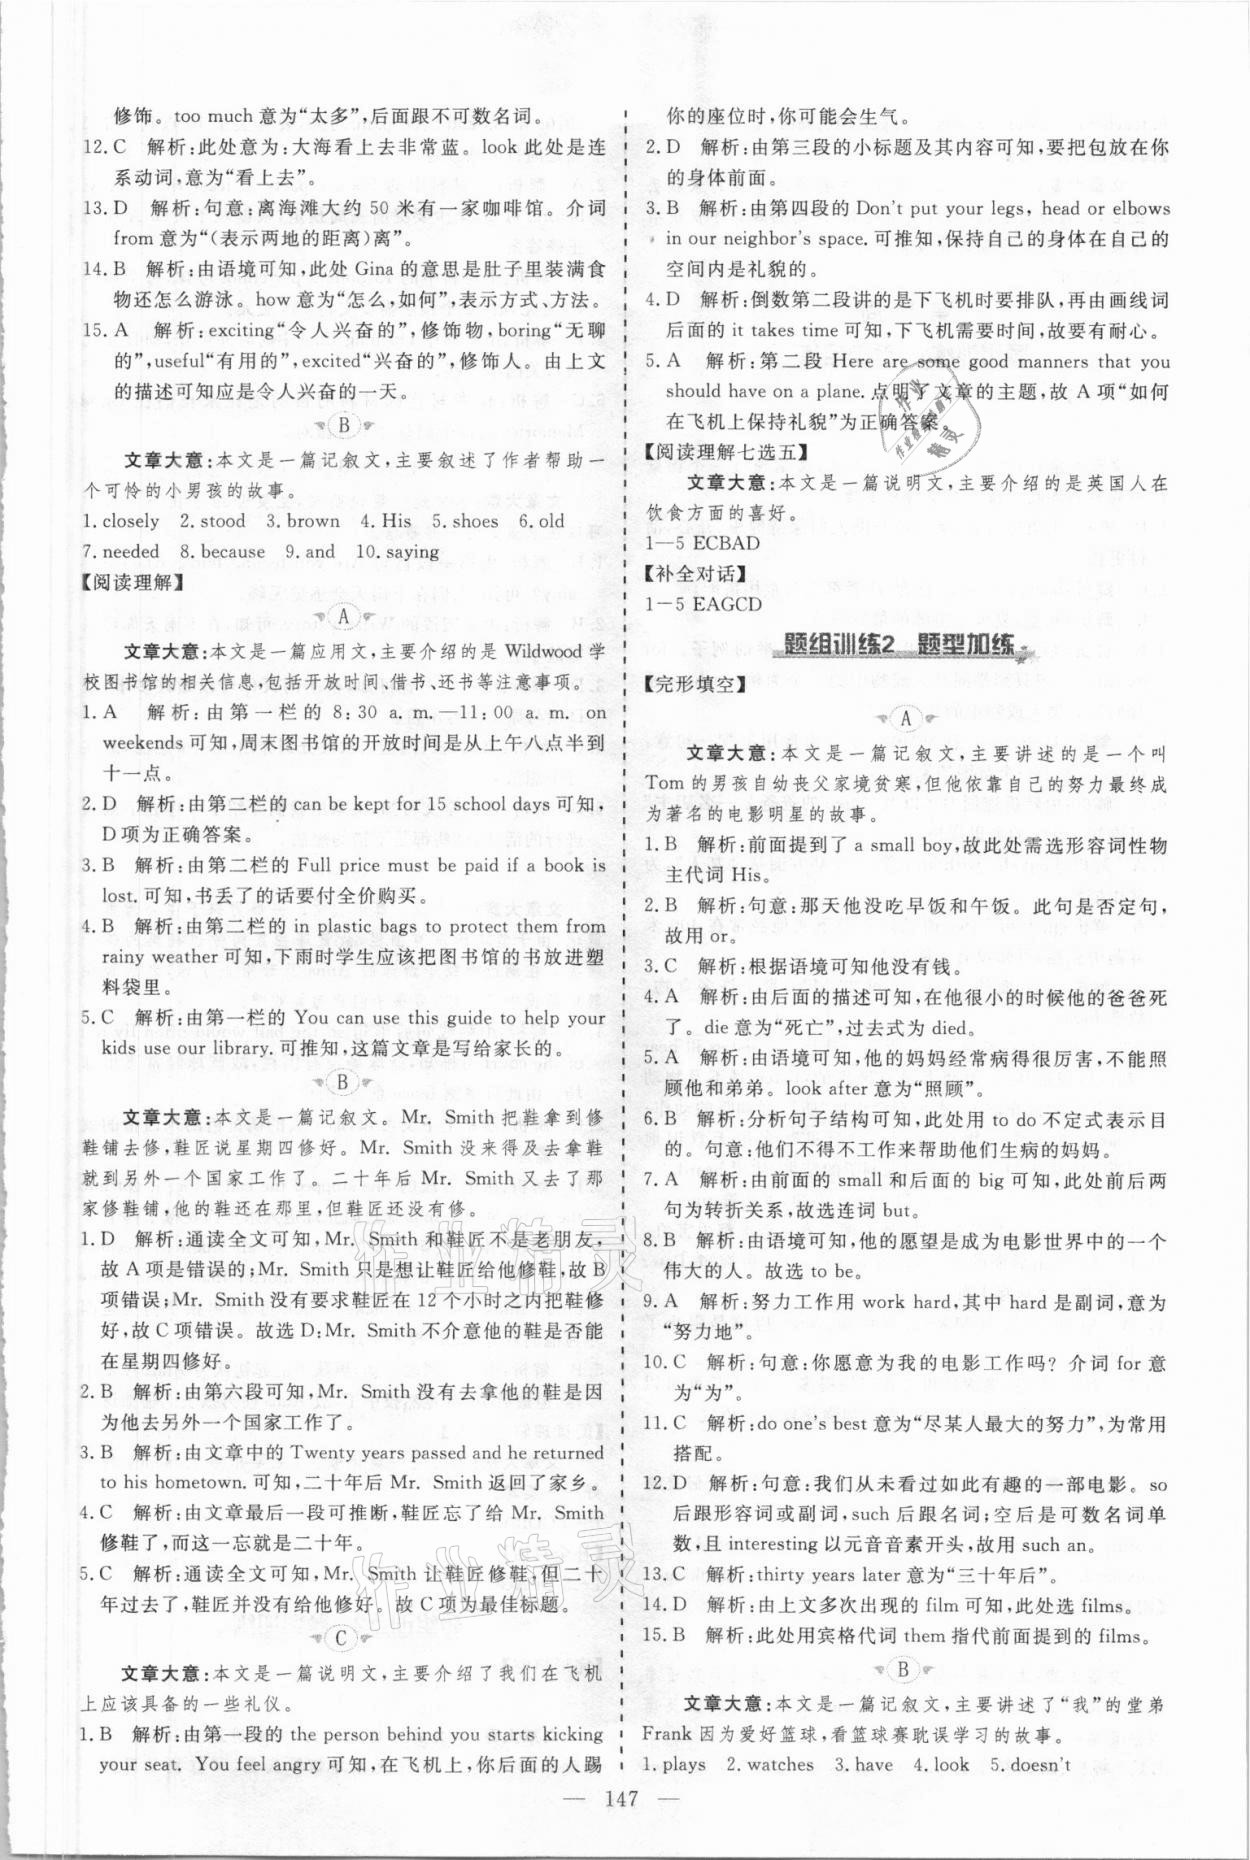 修饰。too much意为“太多”,后面跟不可数名词。
12. C 解析:此处意为:大海看上去非常蓝。look此处是连
系动词,意为“看上去”。
13. D 解析:句意:离海滩大约 50 米有一家咖啡馆。介词
from意为“(表示两地的距离)离”。
14. B 解析:由语境可知,此处 Gina 的意思是肚子里装满食
物还怎么游泳。how意为“怎么,如何”,表示方式、方法。
15. A 解析:exciting“令人兴奋的”,修饰物,boring“无聊
的”,useful“有用的”,excited“兴奋的”,修饰人。由上文
的描述可知应是令人兴奋的一天。
B
文章大意:本文是一篇记叙文,主要叙述了作者帮助一
个可怜的小男孩的故事。
1. closely 2. stood 3. brown 4. His 5. shoes 6. old
7. needed 8. because 9. and 10. saying
【阅读理解】
A
文章大意:本文是一篇应用文,主要介绍的是 Wildwood 学
校图书馆的相关信息,包括开放时间、借书、还书等注意事项。
1. A 解析:由第一栏的 8:30 a. m.—11:00 a. m. on
weekends 可知,周末图书馆的开放时间是从上午八点半到
十一点。
2. D 解析:由第二栏的 can be kept for 15 school days 可知,
D项为正确答案。
3. B 解析:由第二栏的 Full price must be paid if a book is
lost. 可知,书丢了的话要付全价购买。
4. B 解析:由第二栏的 in plastic bags to protect them from
rainy weather 可知,下雨时学生应该把图书馆的书放进塑
料袋里。
5. C 解析:由第一栏的 You can use this guide to help your
kids use our library. 可推知,这篇文章是写给家长的。
B
文章大意:本文是一篇记叙文。Mr. Smith 把鞋拿到修
鞋铺去修,鞋匠说星期四修好。Mr. Smith 没来得及去拿鞋
就到另外一个国家工作了。二十年后 Mr. Smith 又去了那
家修鞋铺,他的鞋还在那里,但鞋匠还没有修。
1. D 解析:通读全文可知,Mr. Smith 和鞋匠不是老朋友,
故 A 项是错误的;Mr. Smith 只是想让鞋匠给他修鞋,故 B
项错误;Mr. Smith 没有要求鞋匠在 12 个小时之内把鞋修
好,故 C 项错误。故选 D:Mr. Smith 不介意他的鞋是否能
在星期四修好。
2. B 解析:由第六段可知,Mr. Smith 没有去拿他的鞋是因
为他去另外一个国家工作了。
3. B 解析:由文章中的 Twenty years passed and he returned
to his hometown. 可知,二十年后 Mr. Smith 返回了家乡。
4. C 解析:由文章最后一段可推断,鞋匠忘了给 Mr. Smith
修鞋了,而这一忘就是二十年。
5. C 解析:通读全文可知,Mr. Smith 让鞋匠修鞋,但二十
年过去了,鞋匠并没有给他修好。故 C 项为最佳标题。
C
文章大意:本文是一篇说明文,主要介绍了我们在飞机
上应该具备的一些礼仪。
1. B 解析:由第一段的 the person behind you starts kicking
your seat. You feel angry 可知,在飞机上,你后面的人踢
你的座位时,你可能会生气。
2. D 解析:由第三段的小标题及其内容可知,要把包放在你
的身体前面。
3. B 解析:由第四段的 Don't put your legs, head or elbows
in our neighbor's space. 可推知,保持自己的身体在自己的
空间内是礼貌的。
4. D 解析:倒数第二段讲的是下飞机时要排队,再由画线词
后面的 it takes time 可知,下飞机需要时间,故要有耐心。
5. A 解析:第二段 Here are some good manners that you
should have on a plane. 点明了文章的主题,故 A 项“如何
在飞机上保持礼貌”为正确答案。
【阅读理解七选五】
文章大意:本文是一篇说明文,主要介绍的是英国人在
饮食方面的喜好。
1—5 ECBAD
【补全对话】
1—5 EAGCD
题组训练2 题型加练
【完形填空】
A
文章大意:本文是一篇记叙文,主要讲述的是一个叫
Tom 的男孩自幼丧父家境贫寒,但他依靠自己的努力最终成
为著名的电影明星的故事。
1. B 解析:前面提到了 a small boy,故此处需选形容词性物
主代词 His。
2. B 解析:句意:那天他没吃早饭和午饭。此句是否定句,
故用 or。
3. C 解析:根据语境可知他没有钱。
4. A 解析:由后面的描述可知,在他很小的时候他的爸爸死
了。die 意为“死亡”,过去式为 died。
5. A 解析:由语境可知,他的妈妈经常病得很厉害,不能照
顾他和弟弟。look after 意为“照顾”。
6. B 解析:分析句子结构可知,此处用 to do 不定式表示目
的。句意:他们不得不工作来帮助他们生病的妈妈。
7. A 解析:由前面的 small 和后面的 big 可知,此处前后两
句为转折关系,故选连词 but。
8. B 解析:由语境可知,他的愿望是成为电影世界中的一个
伟大的人。故选 to be。
9. A 解析:努力工作用 work hard,其中 hard 是副词,意为
“努力地”。
10. C 解析:句意:你愿意为我的电影工作吗? 介词 for 意
为“为”。
11. C 解析:do one's best 意为“尽某人最大的努力”,为常用
搭配。
12. D 解析:句意:我们从未看过如此有趣的一部电影。so
后跟形容词或副词,such 后跟名词;空后是可数名词单
数,且 interesting 以元音音素开头,故用 such an。
13. C 解析:thirty years later 意为“三十年后”。
14. D 解析:由上文多次出现的 film 可知,此处选 films。
15. B 解析:此处用宾格代词 them 指代前面提到的 films。
B
文章大意:本文是一篇记叙文,主要讲述了“我”的堂弟
Frank 因为爱好篮球,看篮球赛耽误学习的故事。
1. plays 2. watches 3. have 4. look 5. doesn't
— 147 —
作业精灵
作业精灵